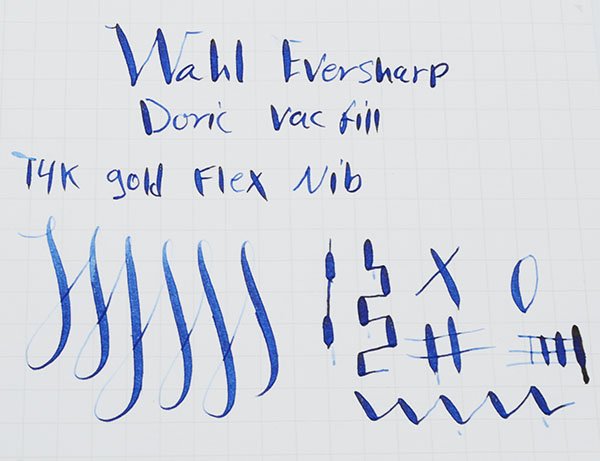 Wahl Eversharp
Doric Vac fill
14K gold Flex Nib
X O